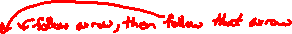 follow arrow, then follow that arrow